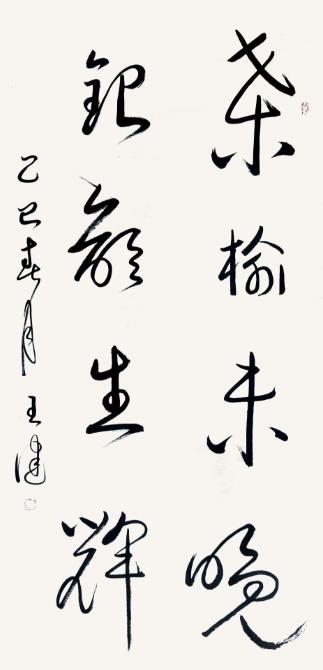 桑榆未晚
银龄生辉
乙巳春月 王健